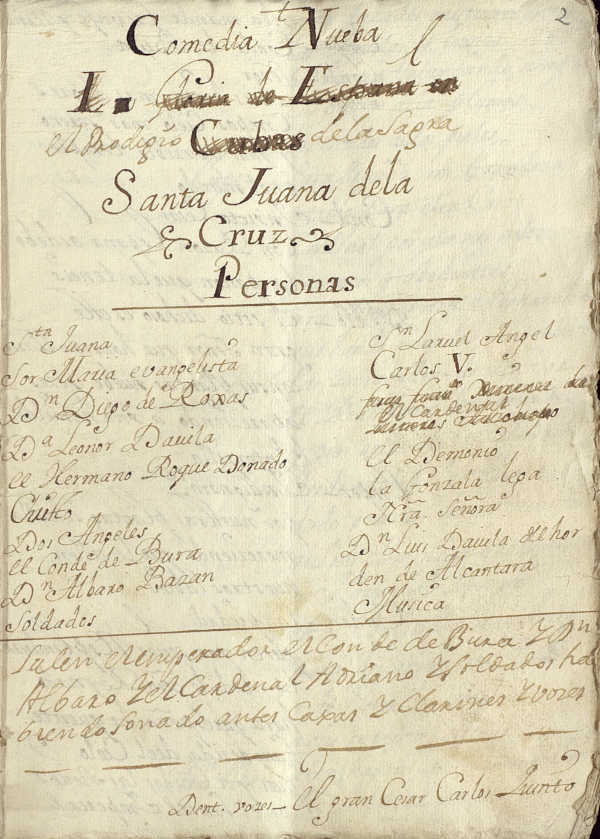 2
Comedia Nueba
La Gloria de España en
el Prodigio Cubas de la Sagra
Santa Juana dela
Cruz
Personas
Sta Juana
Sor Maria evangelista
Dn Diego de Roxas
Da Leonor Davila
el Hermano Roque Donado
Christo
Dos Angeles
el Conde de Bura
Dn Albaro Bazan
Soldados
Sn Laruel Angel
Carlos V.
El Cardenal
el Demonio
la Gonzala lega
Nra. Señora
Dn Luis Davila del hor
den de Alcantara
Musica
Salen el emperador el Conde de Bura Y Dn
Albaro Y el Cardenal Adriano Y Soldados ha
biendo sonado antes Caxas Y Clarines Y vozes
Dent. vozes El gran Cesar Carlos Quinto